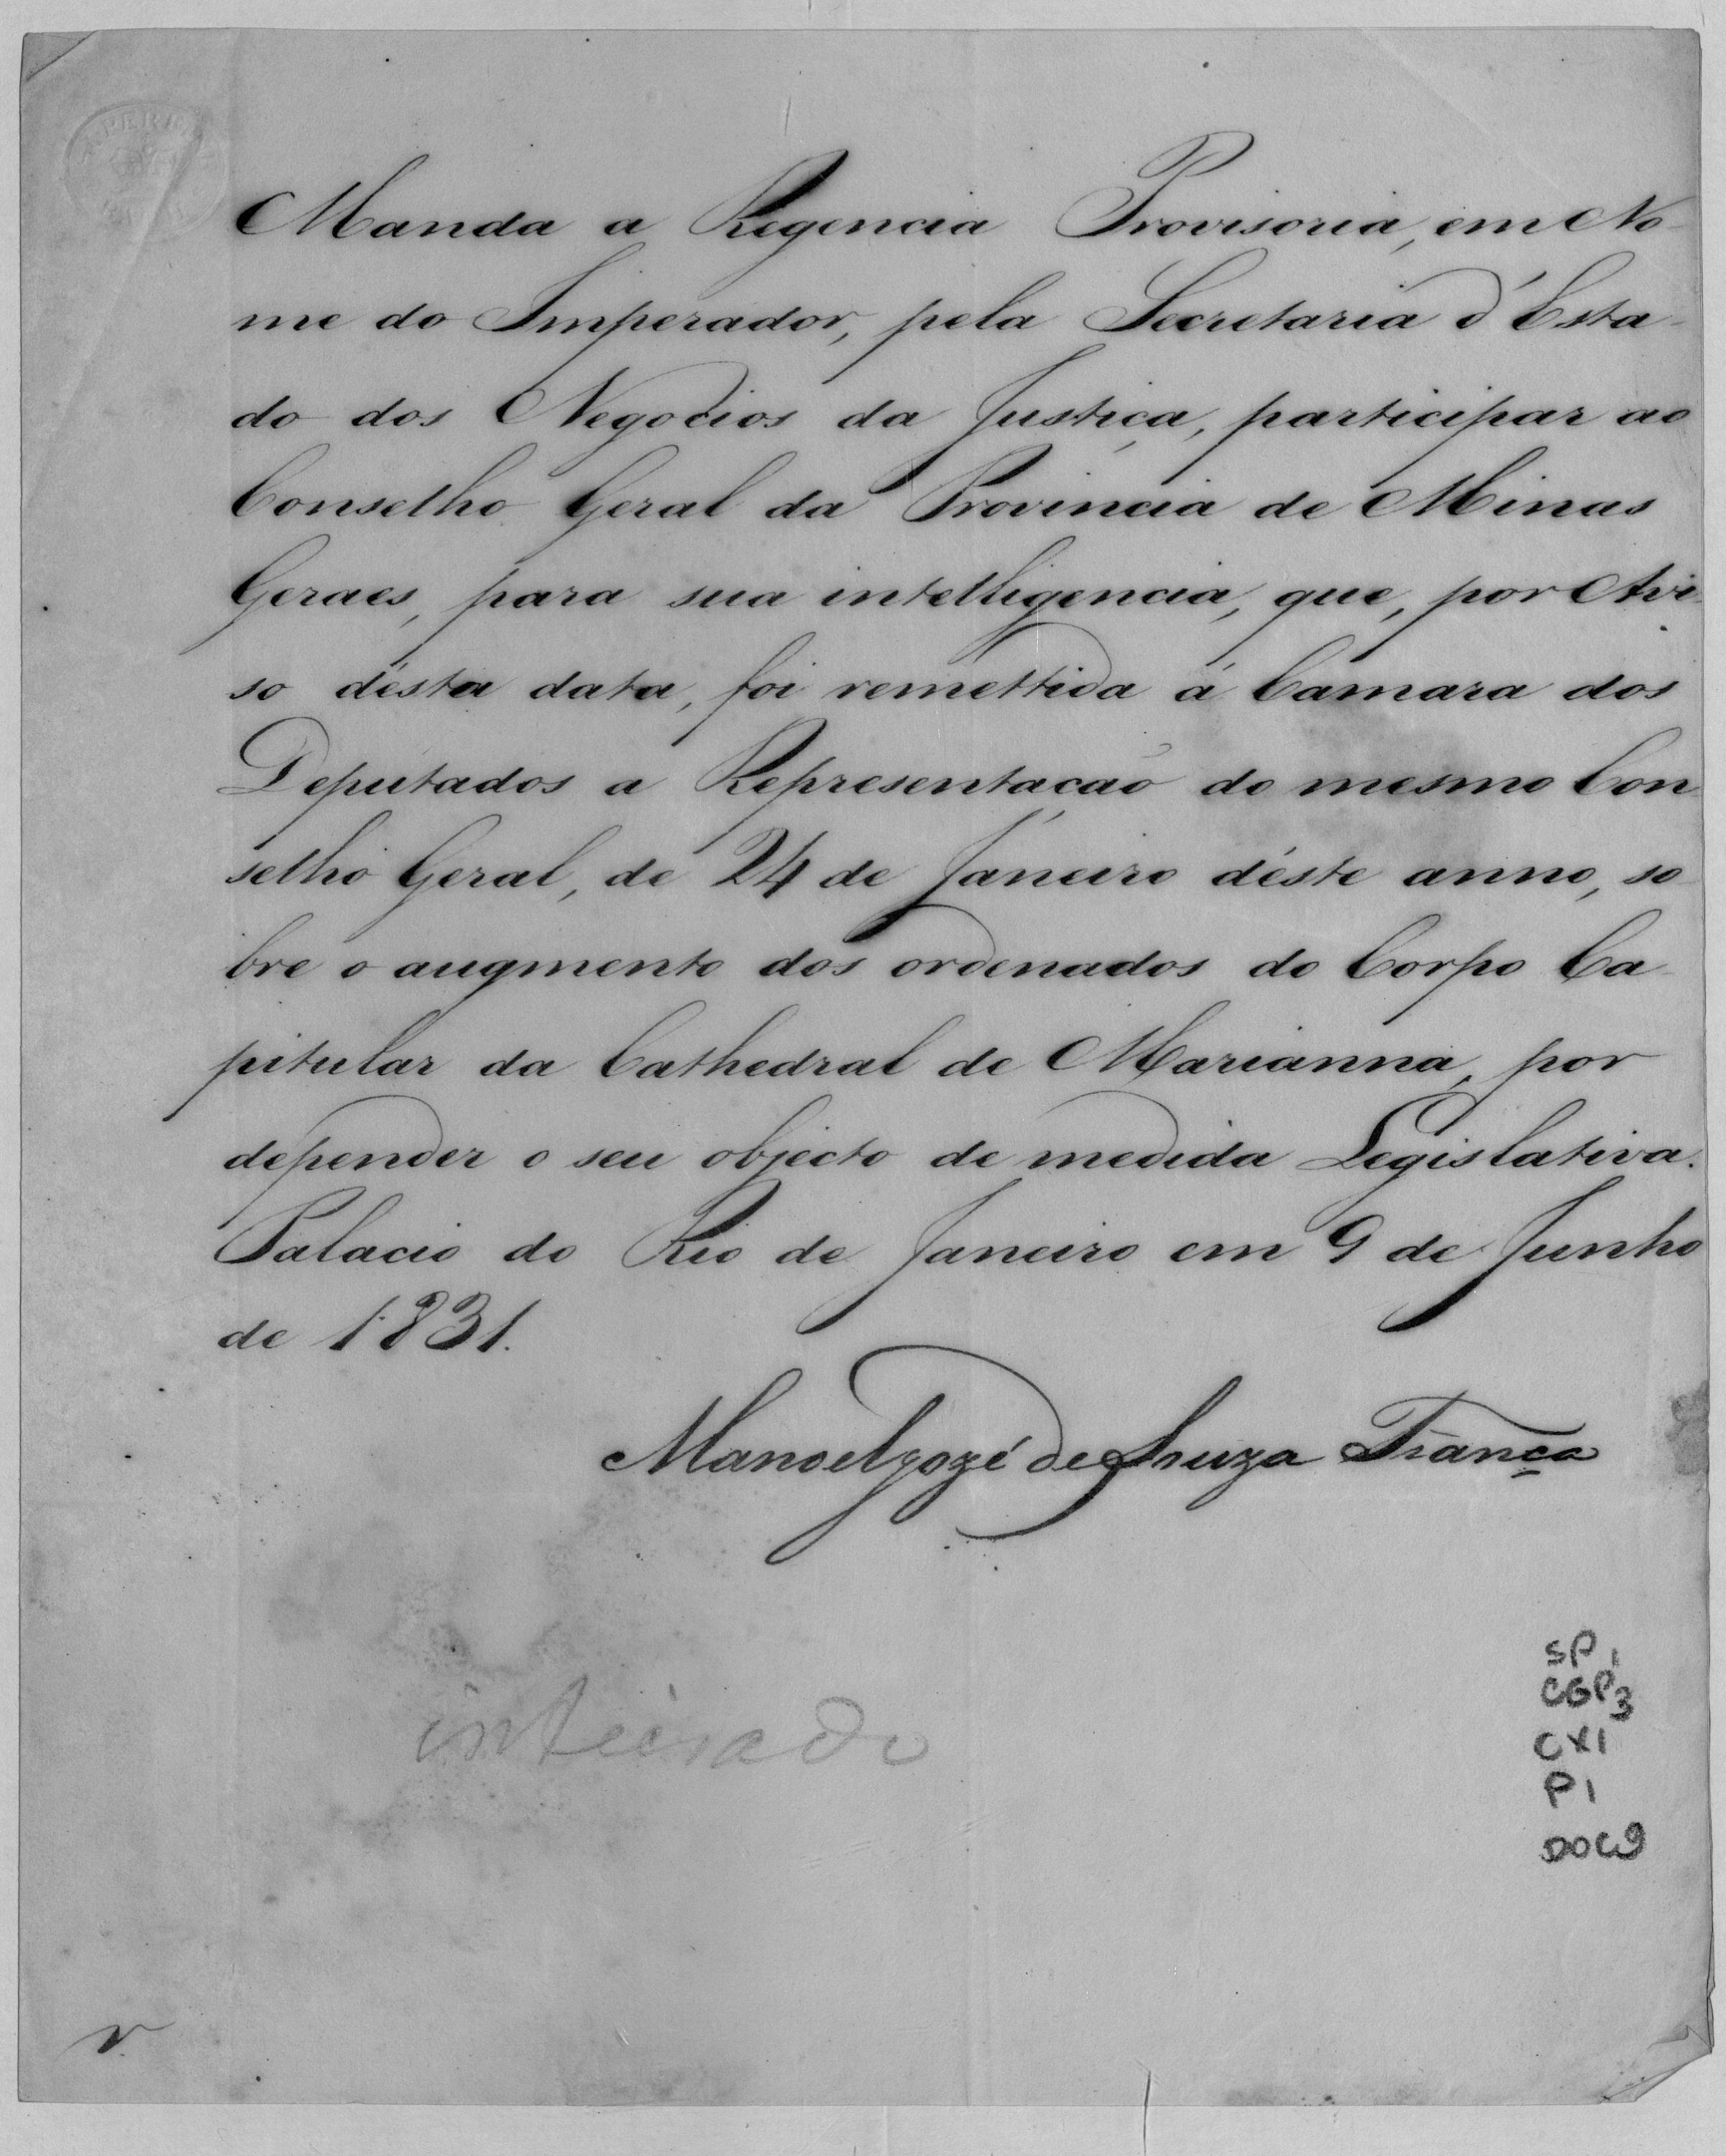 Manda a Regencia Provisoria, em No-
me do Imperador, pela Secretaria d'Esta-
do dos Negocios da Justiça, participar ao
Conselho Geral da Provincia de Minas
Geraes, para sua intelligencia, que, por Avi-
so désta data, foi remettida á Camara dos
Deputados a Representação do mesmo Con
selho Geral, de 24 de Janeiro déste anno, so-
bre o augmento dos ordenados do Corpo Ca-
pitular da Cathedral de Marianna, por
depender o seu objecto de medida Legislativa.
Palacio do Rio de Janeiro em 9 de Junho
de 1831.
Manoel José de Souza França
SP 1
CGP3
CX1
P1
DOC9
inteirado